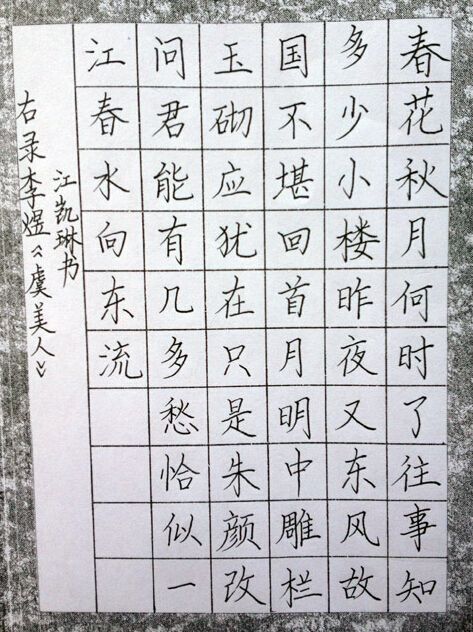 春花秋月何时了往事知
多少小楼昨夜又东风故
国不堪回首月明中雕栏
玉砌应犹在只是朱颜改
问君能有几多愁恰似一
江春水向东流
江凯琳书
右录李煜《虞美人》